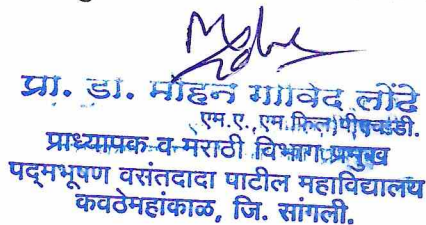 प्रा. डा. मोहन गोविंद लोंढे
एम.ए.,एम.फिल,पीएचडी.
प्राध्यापक व मराठी विभाग प्रमुख
पद्मभूषण वसंतदादा पाटील महाविद्यालय
कवठेमहांकाळ, जि. सांगली.